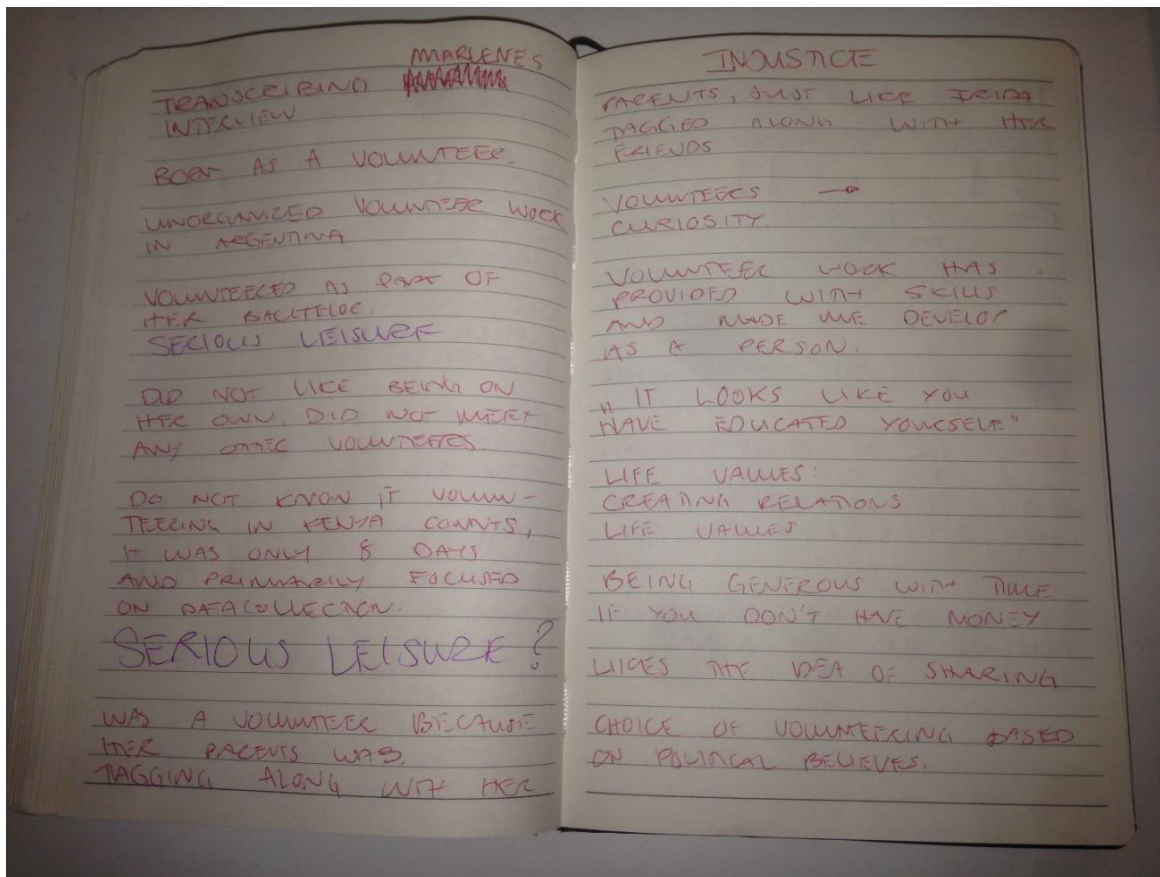 MARLENES
TRANSCRIBING
INTERVIEW
BORN AS A VOLUNTEER.
UNORGANIZED VOLUNTEER WORK
IN ARGENTINA
VOLUNTEERED AS PART OF
HER BACHELOR.
SERIOUS LEISURE
DID NOT LIKE BEING ON
HER OWN. DID NOT MEET
ANY OTHER VOLUNTEERS.
DO NOT KNOW IF VOLUN-
TEERING IN KENYA COUNTS,
IT WAS ONLY 8 DAYS
AND PRIMARILY FOCUSED
ON DATACOLLECTION.
SERIOUS LEISURE?
WAS A VOLUNTEER BECAUSE
HER PARENTS WAS.
TAGGING ALONG WITH HER
INJUSTICE
PARENTS, JUST LIKE FRIDA
TAGGED ALONG WITH HER
FRIENDS
VOLUNTEERS →
CURIOSITY
VOLUNTEER WORK HAS
PROVIDED WITH SKILLS
AND MADE ME DEVELOP
AS A PERSON.
„ IT LOOKS LIKE YOU
HAVE EDUCATED YOURSELF"
LIFE VALUES:
CREATING RELATIONS
LIFE VALUES
BEING GENEROUS WITH TIME
IF YOU DON'T HAVE MONEY.
LIKES THE IDEA OF SHARING
CHOICE OF VOLUNTEERING BASED
ON POLITICAL BELIEVES.